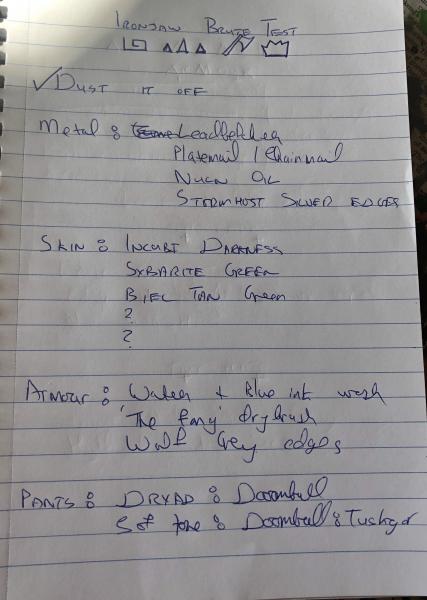 IRONJAW BRUTE TEST
✓ DUST IT OFF
Metal: Leadbelcher
Platemail / Chainmail
NULN OIL
STORMHOST SILVER EDGES
SKIN: INCUBI DARKNESS
SYBARITE GREEN
BIEL TAN Green
?
?
Armour: Water + Blue ink wash
'The fang' drybrush
Wolf Grey edges
PANTS: DRYAD: Doombull
: Doombull: Tuskgor